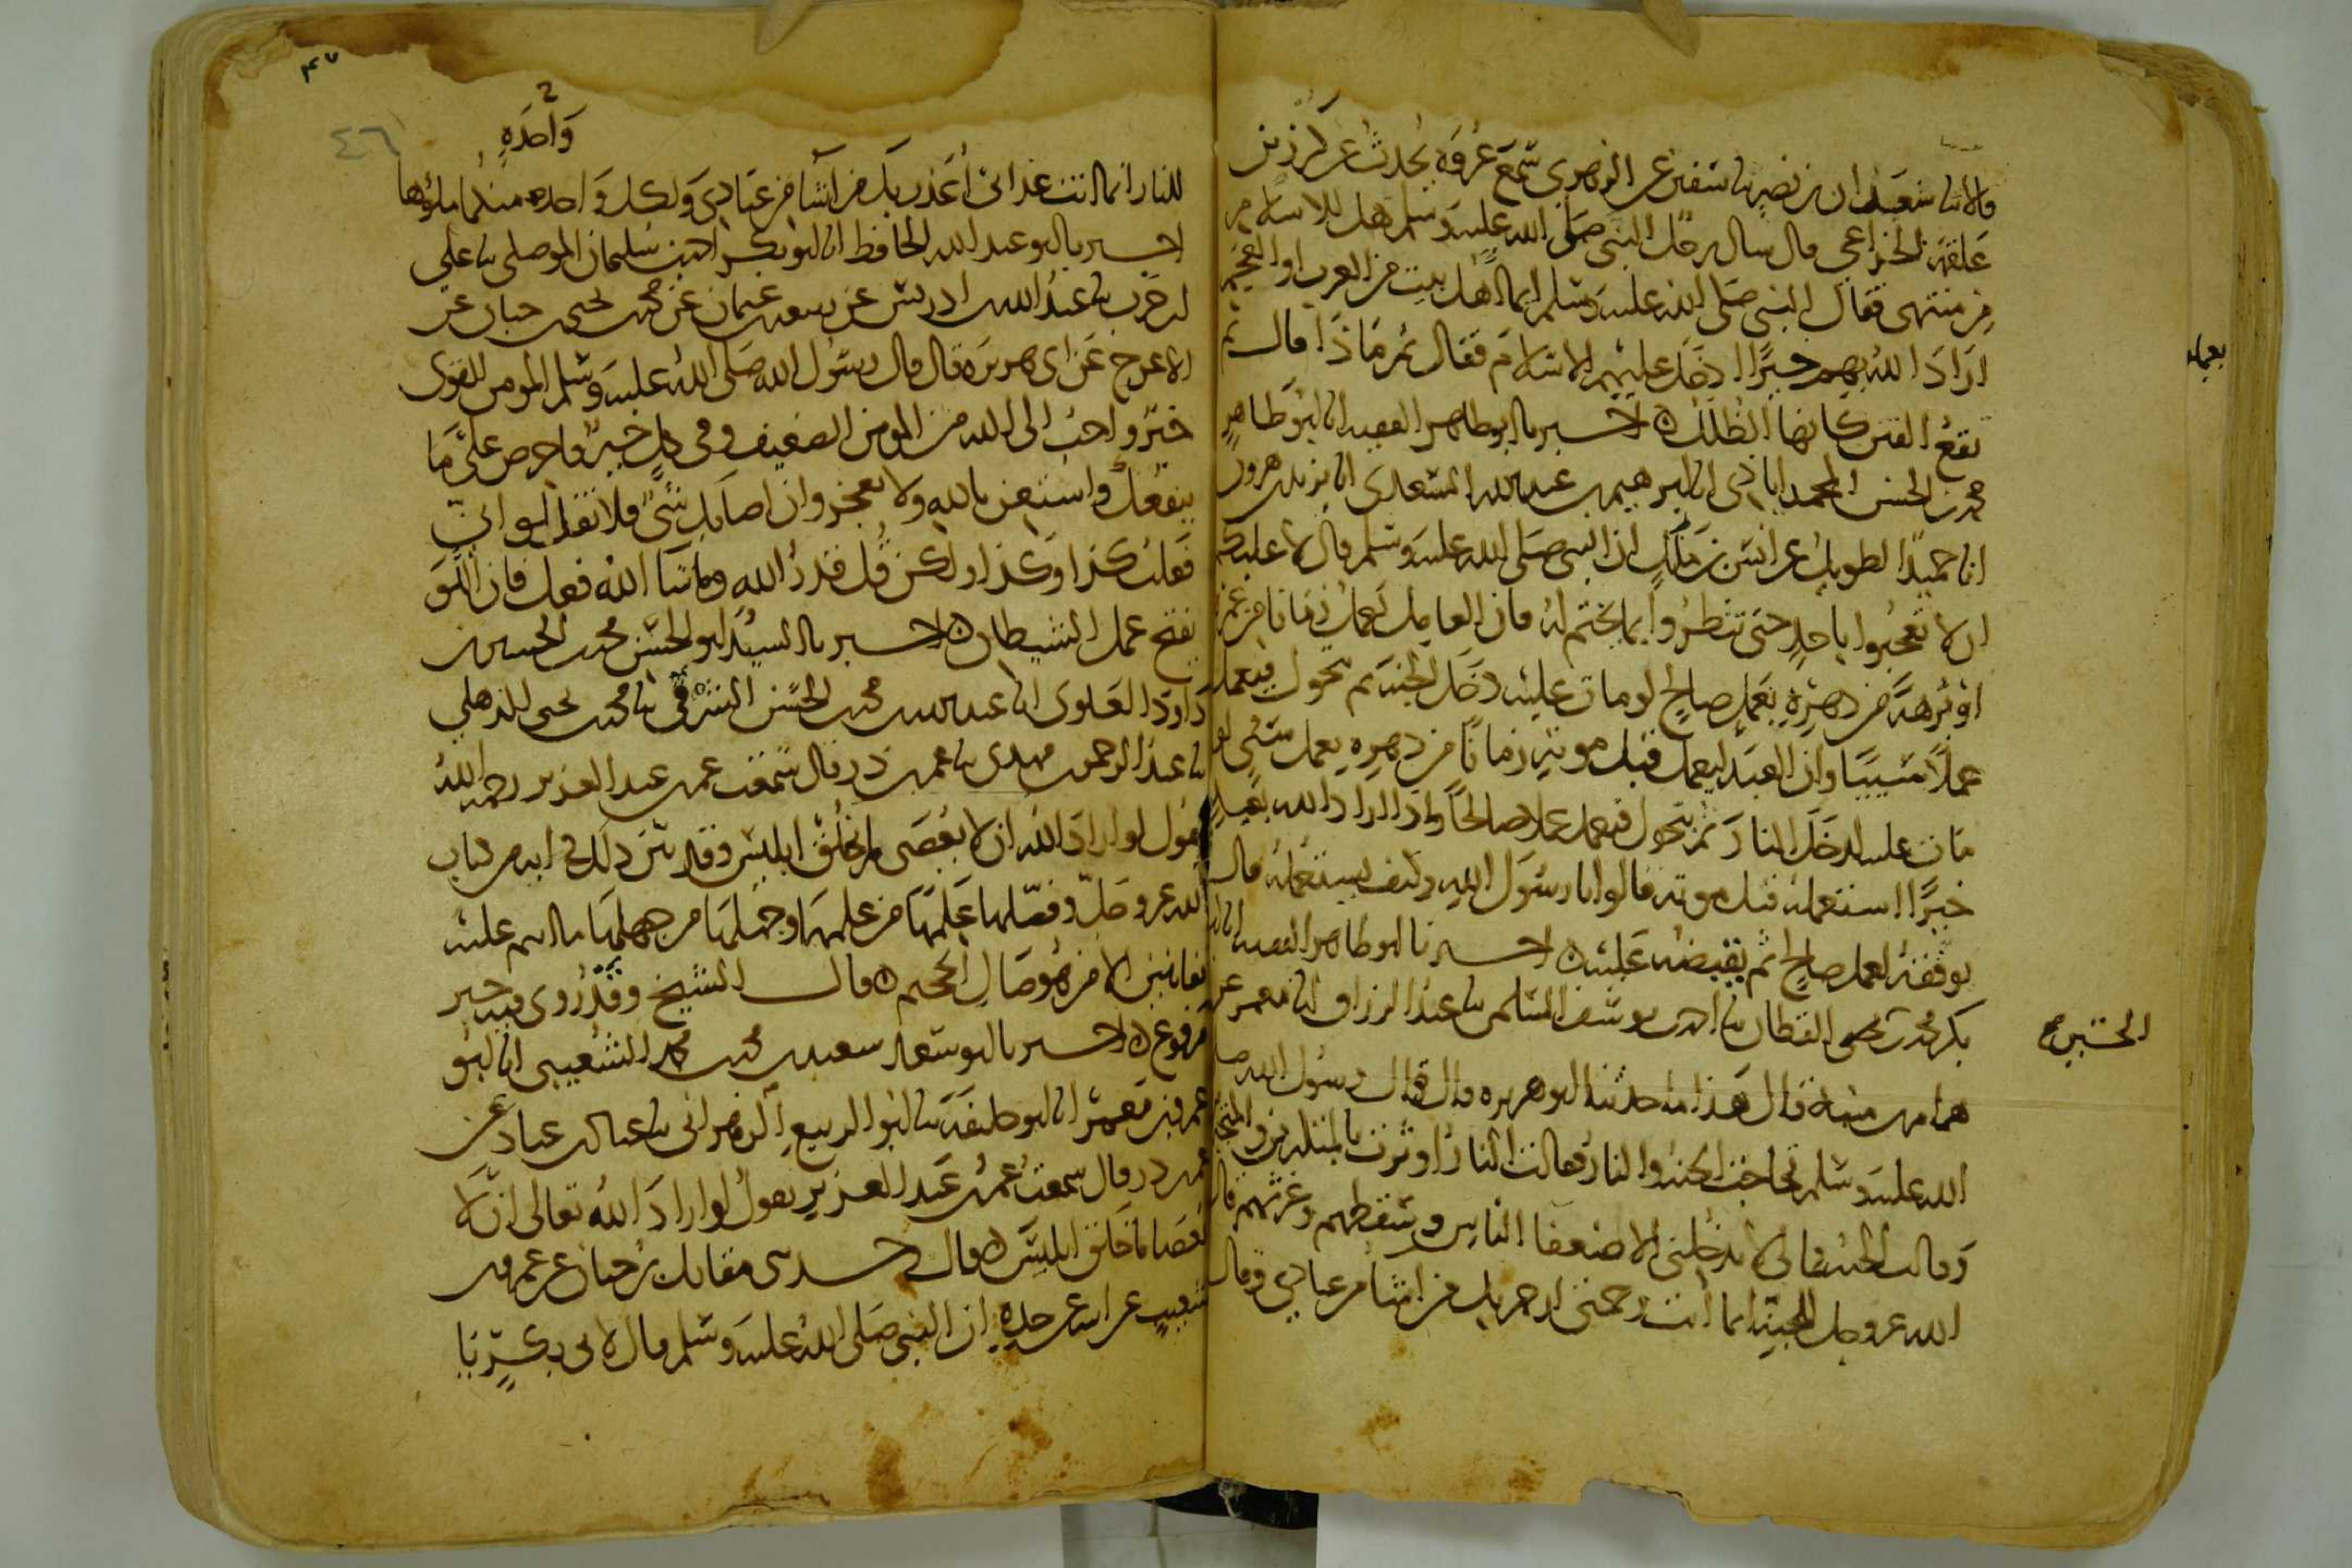 قالا ثنا سعدان بن نصر ثنا سفين عن الزهري سمع عروة يحدث عن كرز بن
علقمة الخزاعي قال سال رجل النبي صلى الله عليه وسلم هل للاسلام
من منتهى فقال النبي صلى الله عليه وسلم ايما اهل بيت من العرب او العجم
اراد الله بهم خيرا ادخل عليهم الاسلام فقال ثم ماذا قال ثم
تقع الفتن كانها الظلل ه اخبرنا ابو طاهر الفقيه انا ابو طاهر
محمد بن الحسن المحمداباذي انا ابرهيم بن عبد الله السعدي انا يزيد بن هرون
انا حميد الطويل عن انس بن ملك ان النبي صلى الله عليه وسلم قال لا عليكم
ان لا تعجبوا باحد حتى تنظروا بما يختم له فان العامل يعمل زمانا من عمره
او برهة من دهره بعمل صالح لو مات عليه دخل الجنة ثم تحول فيعمل
عملا سيئا وان العبد ليعمل قبل موته زمانا من دهره بعمل سيئ لو
مات عليه دخل النار ثم تحول فيعمل عملا صالحا واذا اراد الله بعبد
خيرا استعمله قبل موته قالوا يا رسول الله وكيف يستعمله قال
يوفقه لعمل صالح ثم يقبضه عليه ه اخبرنا ابو طاهر الفقيه انا ابو
بكر محمد بن الحسين القطان ثنا احمد بن يوسف السلمي ثنا عبد الرزاق انا معمر عن
همام بن منبه قال هذا ما حدثنا ابو هريرة قال قال رسول الله صلى
الله عليه وسلم تحاجت الجنة والنار فقالت النار اوثرت بالمتكبرين والمتجبرين
وقالت الجنة فما لي لا يدخلني الا ضعفا الناس وسقطهم وغرتهم قال
الله عز وجل للجنة انما انت رحمتي ارحم بك من اشا من عبادي وقال
بعمله
الحسين صح
٤٧
٤٦
واحدة
للنار انما انت عذابي اعذب بك من اشا من عبادي ولكل واحدة منكما ملؤها
اخبرنا ابو عبد الله الحافظ انا ابو بكر احمد بن سليمان الموصلي ثنا علي
بن حرب ثنا عبد الله بن ادريس عن ربيعة بن عثمان عن محمد بن يحيى بن حبان عن
الاعرج عن ابي هريرة قال قال رسول الله صلى الله عليه وسلم المومن القوي
خير واحب الى الله من المومن الضعيف وفي كل خير فاحرص على ما
ينفعك واستعن بالله ولا تعجز وان اصابك شي فلا تقل لو اني
فعلت كذا وكذا ولكن قل قدر الله وما شا الله فعل فان اللو
يفتح عمل الشيطان ه اخبرنا السيد ابو الحسن محمد بن الحسين بن
داود العلوي انا عبد الله بن محمد بن الحسن الشرقي ثنا محمد بن يحيى الذهلي
ثنا عبد الرحمن بن مهدي ثنا عمر بن ذر قال سمعت عمر بن عبد العزيز رحمه الله
يقول لو اراد الله ان لا يعصى لم يخلق ابليس وقد بين ذلك في اية من كتاب
الله عز وجل وفصلها علمها من علمها وجهلها من جهلها ما انتم عليه
بفاتنين الا من هو صال الجحيم ه قال الشيخ وقد روي فيه خبر
مرفوع ه اخبرنا ابو سعد سعيد بن محمد بن محمد الشعيبي انا ابو
عمرو بن معمر انا ابو خليفة ثنا ابو الربيع الزهراني ثنا عباد بن عباد عن
عمر بن ذر قال سمعت عمر بن عبد العزيز يقول لو اراد الله تعالى ان لا
يعصا ما خلق ابليس ه قال وحدثني مقاتل بن حيان عن عمرو بن
شعيب عن ابيه عن جده ان النبي صلى الله عليه وسلم قال لابي بكر يا با